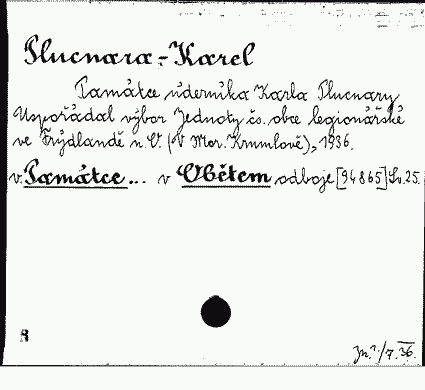 Plucnara - Karel
Památce úderníka Karla Plucnary
Uspořádal výbor Jednoty čs. obce legionářské
ve Frýdlandě n. O. (V Mor. Krumlově), 1936.
v. Památce... v Obětem odboje [94865] Sv. 25.
8
/7. 36.